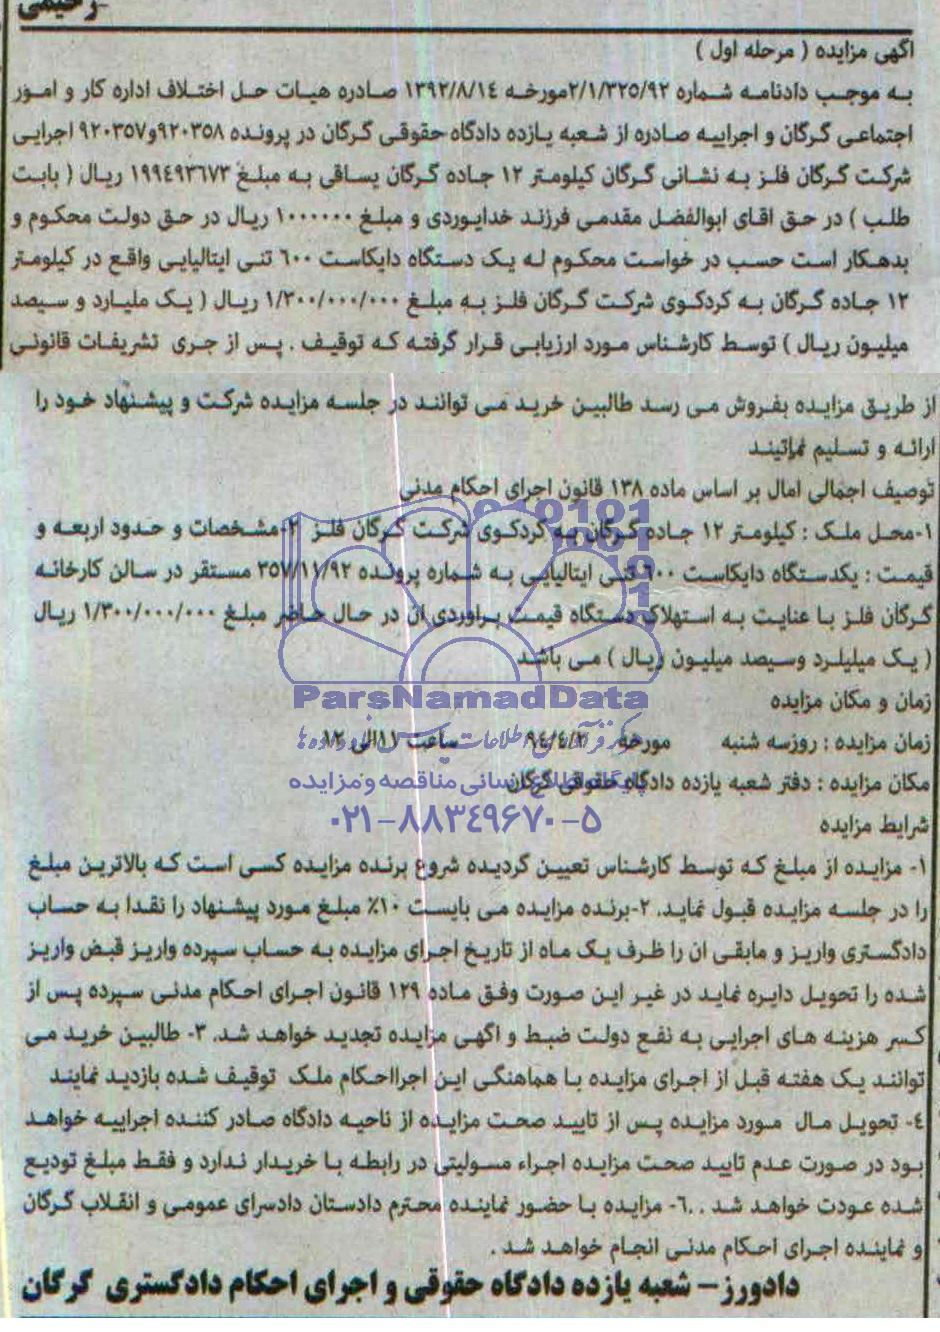 رحیمی
آگهی مزایده ( مرحله اول )
به موجب دادنامه شماره ۲/۱/۳۲۵/۹۲مورخه ۱۳۹۲/۸/۱٤ صادره هیات حل اختلاف اداره کار و امور
اجتماعی گرگان و اجراییه صادره از شعبه یازده دادگاه حقوقی گرگان در پرونده ۹۲۰۳۵۸و۹۲۰۳۵۷ اجرایی
شرکت گرگان فلز به نشانی گرگان کیلومتر ۱۲ جاده گرگان یساقی به مبلغ ۱۹۹٤۹۳٦۷۳ ریال ( بابت
طلب ) در حق اقای ابوالفضل مقدمی فرزند خدایوردی و مبلغ ۱۰۰۰۰۰۰ ریال در حق دولت محکوم و
بدهکار است حسب در خواست محکوم له یک دستگاه دایکاست ٦۰۰ تنی ایتالیایی واقع در کیلومتر
۱۲ جاده گرگان به کردکوی شرکت گرگان فلز به مبلغ ۱/۳۰۰/۰۰۰/۰۰۰ ریال ( یک ملیارد و سیصد
میلیون ریال ) توسط کارشناس مورد ارزیابی قرار گرفته که توقیف . پس از جری تشریفات قانونی
از طریق مزایده بفروش می رسد طالبین خرید می توانند در جلسه مزایده شرکت و پیشنهاد خود را
ارائه و تسلیم نمائیند
توصیف اجمالی امال بر اساس ماده ۱۳۸ قانون اجرای احکام مدنی
۱-محل ملک : کیلومتر ۱۲ جاده گرگان به کردکوی شرکت گرگان فلز ۲-مشخصات و حدود اربعه و
قیمت : یکدستگاه دایکاست ٦۰۰ تنی ایتالیایی به شماره پرونده ۳۵۷/۱۱/۹۲ مستقر در سالن کارخانه
گرگان فلز با عنایت به استهلاک دستگاه قیمت براوردی ان در حال حاضر مبلغ ۱/۳۰۰/۰۰۰/۰۰۰ ریال
( یک میلیلرد وسیصد میلیون ریال ) می باشد
ParsNamadData
زمان و مکان مزایده
زمان مزایده : روزسه شنبه مورخه ۹٤/٤/۲ ساعت ۱۱الی ۱۲
مکان مزایده : دفتر شعبه یازده دادگاه حقوقی گرگان
پایگاه اطلاع رسانی مناقصه و مزایده
۰۲۱-۸۸۳۴۹۶۷۰-۵
شرایط مزایده
۱- مزایده از مبلغ که توسط کارشناس تعیین گردیده شروع برنده مزایده کسی است که بالاترین مبلغ
را در جلسه مزایده قبول نماید. ۲-برنده مزایده می بایست ۱۰٪ مبلغ مورد پیشنهاد را نقدا به حساب
دادگستری واریز و مابقی ان را ظرف یک ماه از تاریخ اجرای مزایده به حساب سپرده واریز قبض واریز
شده را تحویل دایره نماید در غیر این صورت وفق ماده ۱۲۹ قانون اجرای احکام مدنی سپرده پس از
کسر هزینه های اجرایی به نفع دولت ضبط و اگهی مزایده تجدید خواهد شد. ۳- طالبین خرید می
توانند یک هفته قبل از اجرای مزایده با هماهنگی این اجرااحکام ملک توقیف شده بازدید نمایند
٤- تحویل مال مورد مزایده پس از تایید صحت مزایده از ناحیه دادگاه صادر کننده اجراییه خواهد
بود در صورت عدم تایید صحت مزایده اجراء مسولیتی در رابطه با خریدار ندارد و فقط مبلغ تودیع
شده عودت خواهد شد . .٦- مزایده با حضور نماینده محترم دادستان دادسرای عمومی و انقلاب گرگان
و نماینده اجرای احکام مدنی انجام خواهد شد .
دادورز- شعبه یازده دادگاه حقوقی و اجرای احکام دادگستری گرگان